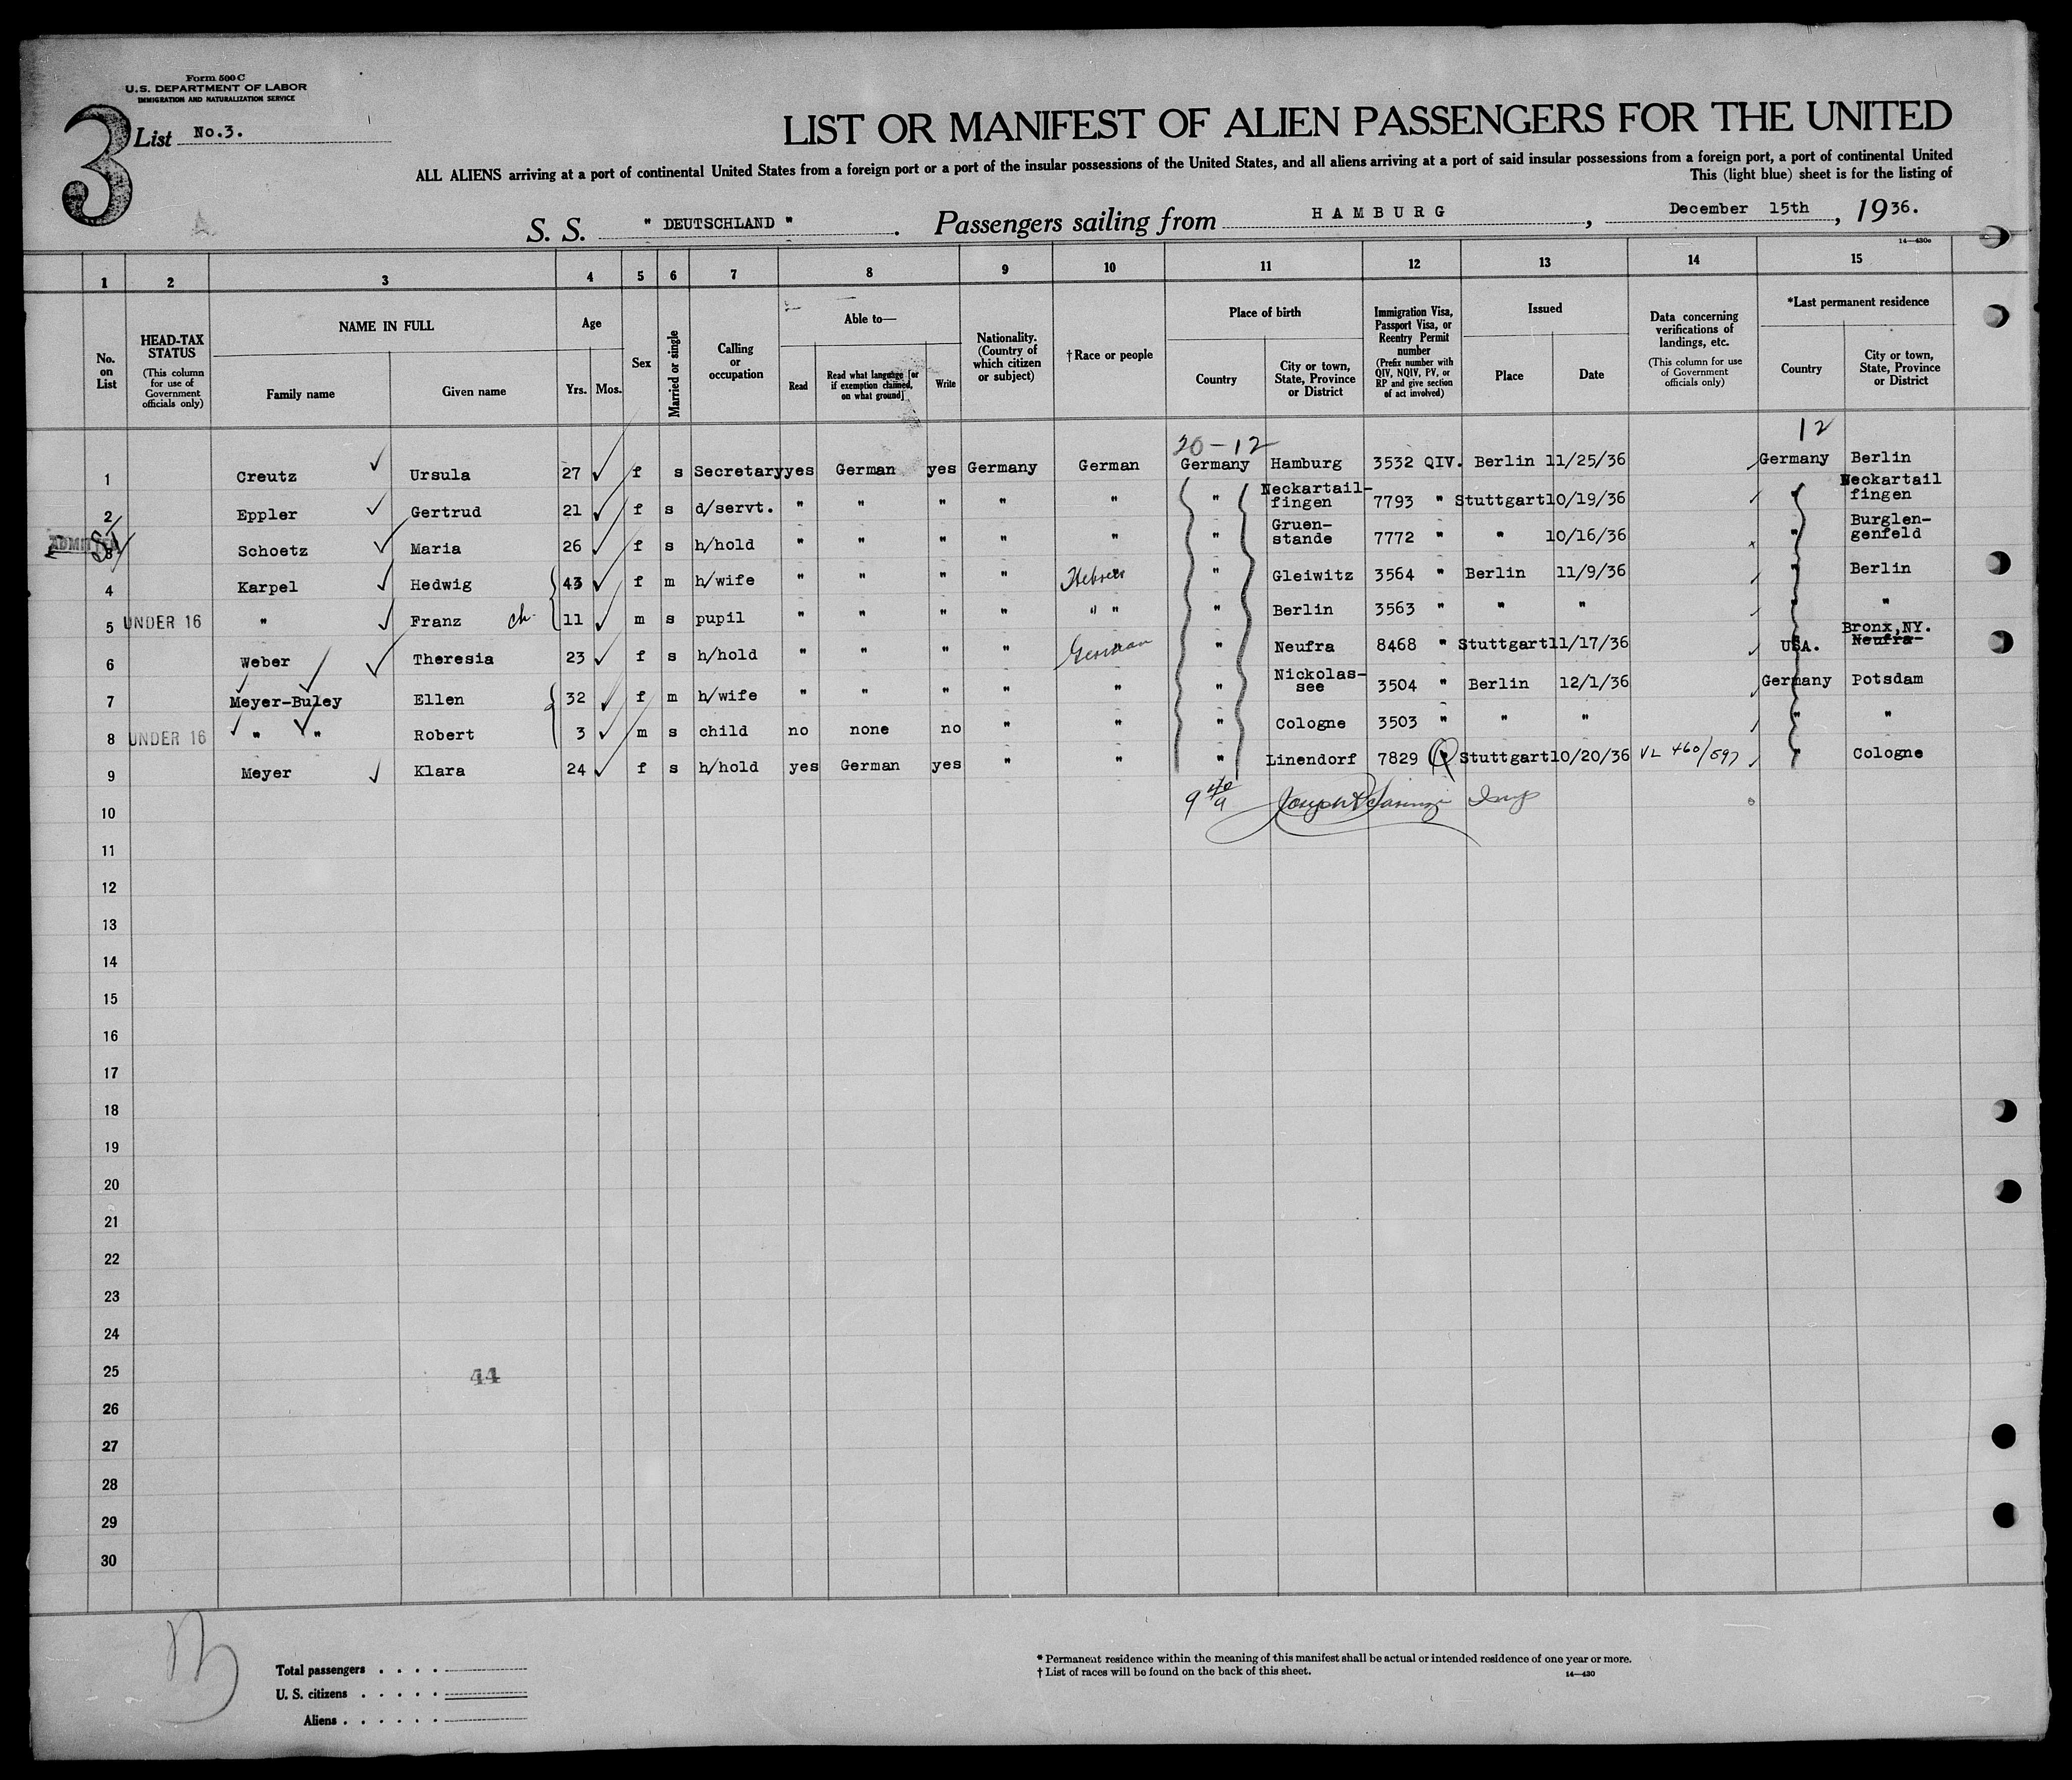 Form 500 C
U.S. DEPARTMENT OF LABOR
IMMIGRATION AND NATURALIZATION SERVICE
3
List No.3.
LIST OR MANIFEST OF ALIEN PASSENGERS FOR THE UNITED
ALL ALIENS arriving at a port of continental United States from a foreign port or a port of the insular possessions of the United States, and all aliens arriving at a port of said insular possessions from a foreign port, a port of continental United
This (light blue) sheet is for the listing of
S. S. " DEUTSCHLAND " . Passengers sailing from HAMBURG , December 15th , 1936.
14—430c
1 2 3 4 5 6 7 8 9 10 11 12 13 14 15
No. on List
HEAD-TAX STATUS (This column for use of Government officials only)
NAME IN FULL
Family name
Given name
Age
Yrs. Mos.
Sex
Married or single
Calling or occupation
Able to—
Read
Read what language [or if exemption claimed, on what ground]
Write
Nationality. (Country of which citizen or subject)
† Race or people
Place of birth
Country
City or town, State, Province or District
Immigration Visa, Passport Visa, or Reentry Permit number (Prefix number with QIV, NQIV, PV, or RP and give section of act involved)
Issued
Place
Date
Data concerning verifications of landings, etc. (This column for use of Government officials only)
*Last permanent residence
Country
City or town, State, Province or District
20-12 12
1 Creutz Ursula 27 f s Secretary yes German yes Germany German Germany Hamburg 3532 QIV. Berlin 11/25/36 Germany Berlin
2 Eppler Gertrud 21 f s d/servt. " " " " " " Neckartail-fingen 7793 " Stuttgart 10/19/36 " Neckartail fingen
ADMITTED
3 Schoetz Maria 26 f s h/hold " " " " " " Gruen-stande 7772 " " 10/16/36 " Burglen-genfeld
4 Karpel Hedwig 43 f m h/wife " " " " Hebrew " Gleiwitz 3564 " Berlin 11/9/36 " Berlin
5 UNDER 16 " Franz ch. 11 m s pupil " " " " " " " Berlin 3563 " " " " "
6 Weber Theresia 23 f s h/hold " " " " German " Neufra 8468 " Stuttgart 11/17/36 USA. Bronx,NY. Neufra
7 Meyer-Buley Ellen 32 f m h/wife " " " " " " Nickolas-see 3504 " Berlin 12/1/36 Germany Potsdam
8 UNDER 16 " " Robert 3 m s child no none no " " " Cologne 3503 " " " " "
9 Meyer Klara 24 f s h/hold yes German yes " " " Linendorf 7829 " Stuttgart 10/20/36 VL 460/597 " Cologne
10
11
12
13
14
15
16
17
18
19
20
21
22
23
24
25
44
26
27
28
29
30
Total passengers . . . .
U. S. citizens . . . . .
Aliens . . . . . .
* Permanent residence within the meaning of this manifest shall be actual or intended residence of one year or more.
† List of races will be found on the back of this sheet.
14—430